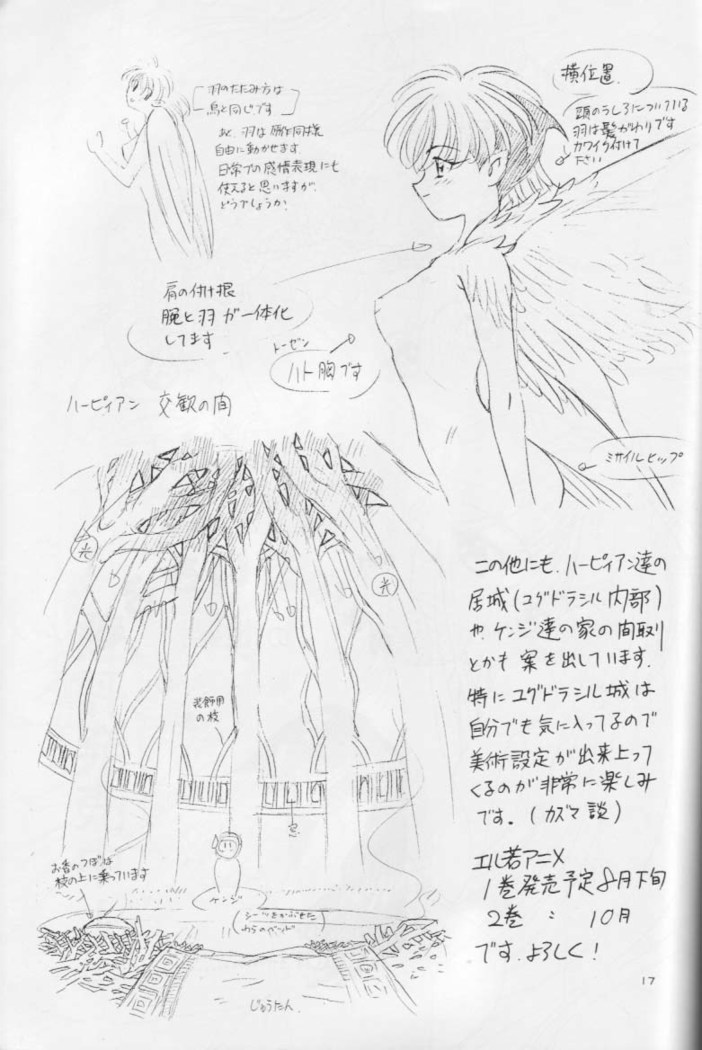 羽のたたみ方は
鳥と同じです
あと、羽は腕と同様
自由に動かせます
日常での感情表現にも
使えると思いますが、
どうでしょうか?
横位置
頭のうしろについている
羽は髪がわりです
カワイク付けて
下さい
肩の付け根
腕と羽が一体化
してます
トーゼン
ハト胸です
ミサイルヒップ
ハーピィアン 交歓の間
光
光
装飾用
の枝
窓
お香のつぼは
枝の上に乗っています
ケンジ
じゅうたん
この他にも、ハーピィアン達の
居城(ユグドラシル内部)
や、ケンジ達の家の間取り
とかも案を出しています。
特にユグドラシル城は
自分でも気に入ってるので
美術設定が出来上って
くるのが非常に楽しみ
です。(カズマ談)
エル若アニメ
1巻発売予定8月下旬
2巻 〃 10月
です。よろしく!
17